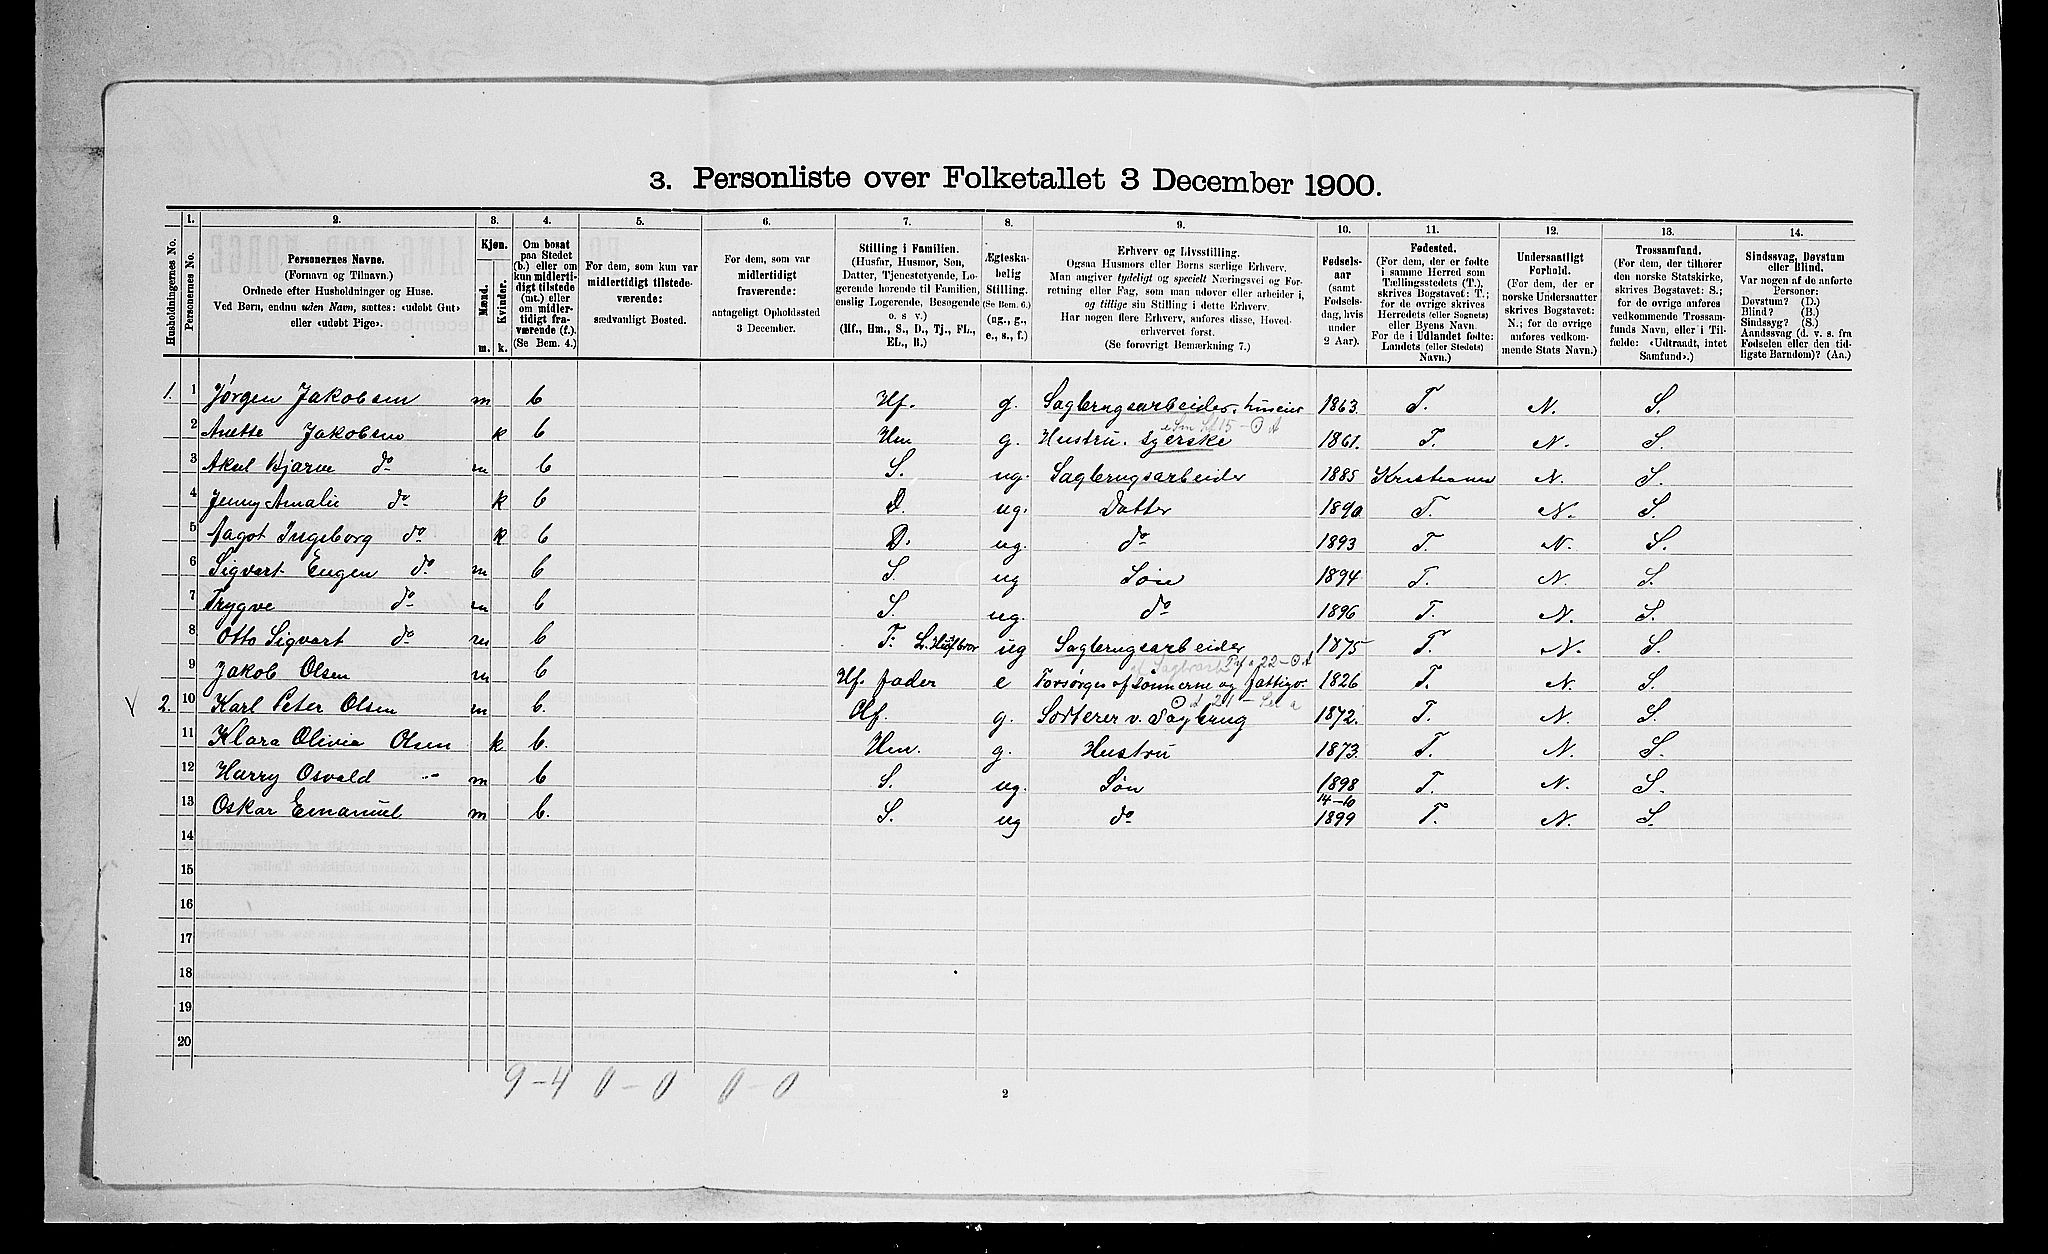 3. Personliste over Folketallet 3 December 1900.
Husholdningernes No.
1. Personernes No.
2. Personernes Navne.
(Fornavn og Tilnavn.)
Ordnede efter Husholdninger og Huse.
Ved Børn, endnu uden Navn, sættes: «udøbt Gut»
eller «udøbt Pige».
3. Kjøn.
Mænd. Kvinder.
m. k.
4. Om bosat
paa Stedet
(b.) eller om
kun midlerti-
digt tilstede
(mt.) eller
om midler-
tidigt fra-
værende (f.).
(Se Bem. 4.)
5. For dem, som kun var
midlertidigt tilstede-
værende:
sædvanligt Bosted.
6. For dem, som var
midlertidigt
fraværende:
antageligt Opholdssted
3 December.
7. Stilling i Familien.
(Husfar, Husmor, Søn,
Datter, Tjenestetyende, Lo-
gerende hørende til Familien,
enslig Logerende, Besøgende
o. s v.)
(Hf., Hm., S., D., Tj., FL.,
EL., B.)
8. Ægteska-
belig
Stilling.
(Se Bem. 6.)
(ug., g.,
e., s., f.)
9. Erhverv og Livsstilling.
Ogsaa Husmors eller Børns særlige Erhverv.
Man angiver tydeligt og specielt Næringsvei og For-
retning eller Fag, som man udøver eller arbeider i,
og tillige sin Stilling i dette Erhverv.
Har nogen flere Erhverv, anføres disse, Hoved-
erhvervet først.
(Se forøvrigt Bemærkning 7.)
10. Fødsels-
aar
(samt
Fødsels-
dag, hvis
under
2 Aar).
11. Fødested.
(For dem, der er fødte
i samme Herred som
Tællingsstedets (T.),
skrives Bogstavet: T.;
for de øvrige skrives
Herredets (eller Sognets)
eller Byens Navn.
For de i Udlandet fødte:
Landets (eller Stedets)
Navn.)
12. Undersaatligt
Forhold.
(For dem, der er
norske Undersaatter
skrives Bogstavet:
N.; for de øvrige
anføres vedkom-
mende Stats Navn.)
13. Trossamfund.
(For dem, der tilhører
den norske Statskirke,
skrives Bogstavet: S.;
for de øvrige anføres
vedkommende Trossam-
funds Navn, eller i Til-
fælde: «Udtraadt, intet
Samfund».)
14. Sindssvag, Døvstum
eller Blind.
Var nogen af de anførte
Personer:
Døvstum? (D.)
Blind? (B.)
Sindssyg? (S.)
Aandssvag (d. v. s. fra
Fødselen eller den tid-
ligste Barndom)? (Aa.)
1. 1 Jørgen Jakobsen m b Hf. g. Sagbrugsarbeider, huseier 1863. T. N. S.
2 Anette Jakobsen k b Hm g. Hustru. syerske 1861. T. N. S.
3 Aksel Hjarm do m b S. ug. Sagbrugsarbeider 1885 Kristiania N. S.
4 Jenny Amalie do k b D. ug. Datter 1890 T. N. S.
5 Aagot Ingeborg do k b D. ug. do 1893 T. N. S.
6 Sigvart Eugen do m b S. ug Søn 1894 T. N. S.
7 Trygve do m b S. ug. do 1896 T. N. S.
8 Otto Sigvart do m b F. L. Husf bror ug Sagbrugsarbeider 1875 T. N. S.
9 Jakob Olsen m b Hf. fader e Forsørges af sønnerne og fattigv. 1826 T. N. S.
2. 10 Karl Peter Olsen m b. Hf. g. Sorterer v. Sagbrug 1872. T. N. S.
11 Klara Olivia Olsen k b. Hm. g. Hustru 1873. T. N. S.
12 Harry Osvald -"- m b S. ug. Søn 1898 T. N. S.
13 Oskar Emanuel m b. S. ug do 14-10 1899 T. N. S.
14
15
16
17
18
19
20
9-4 0-0 0-0
2